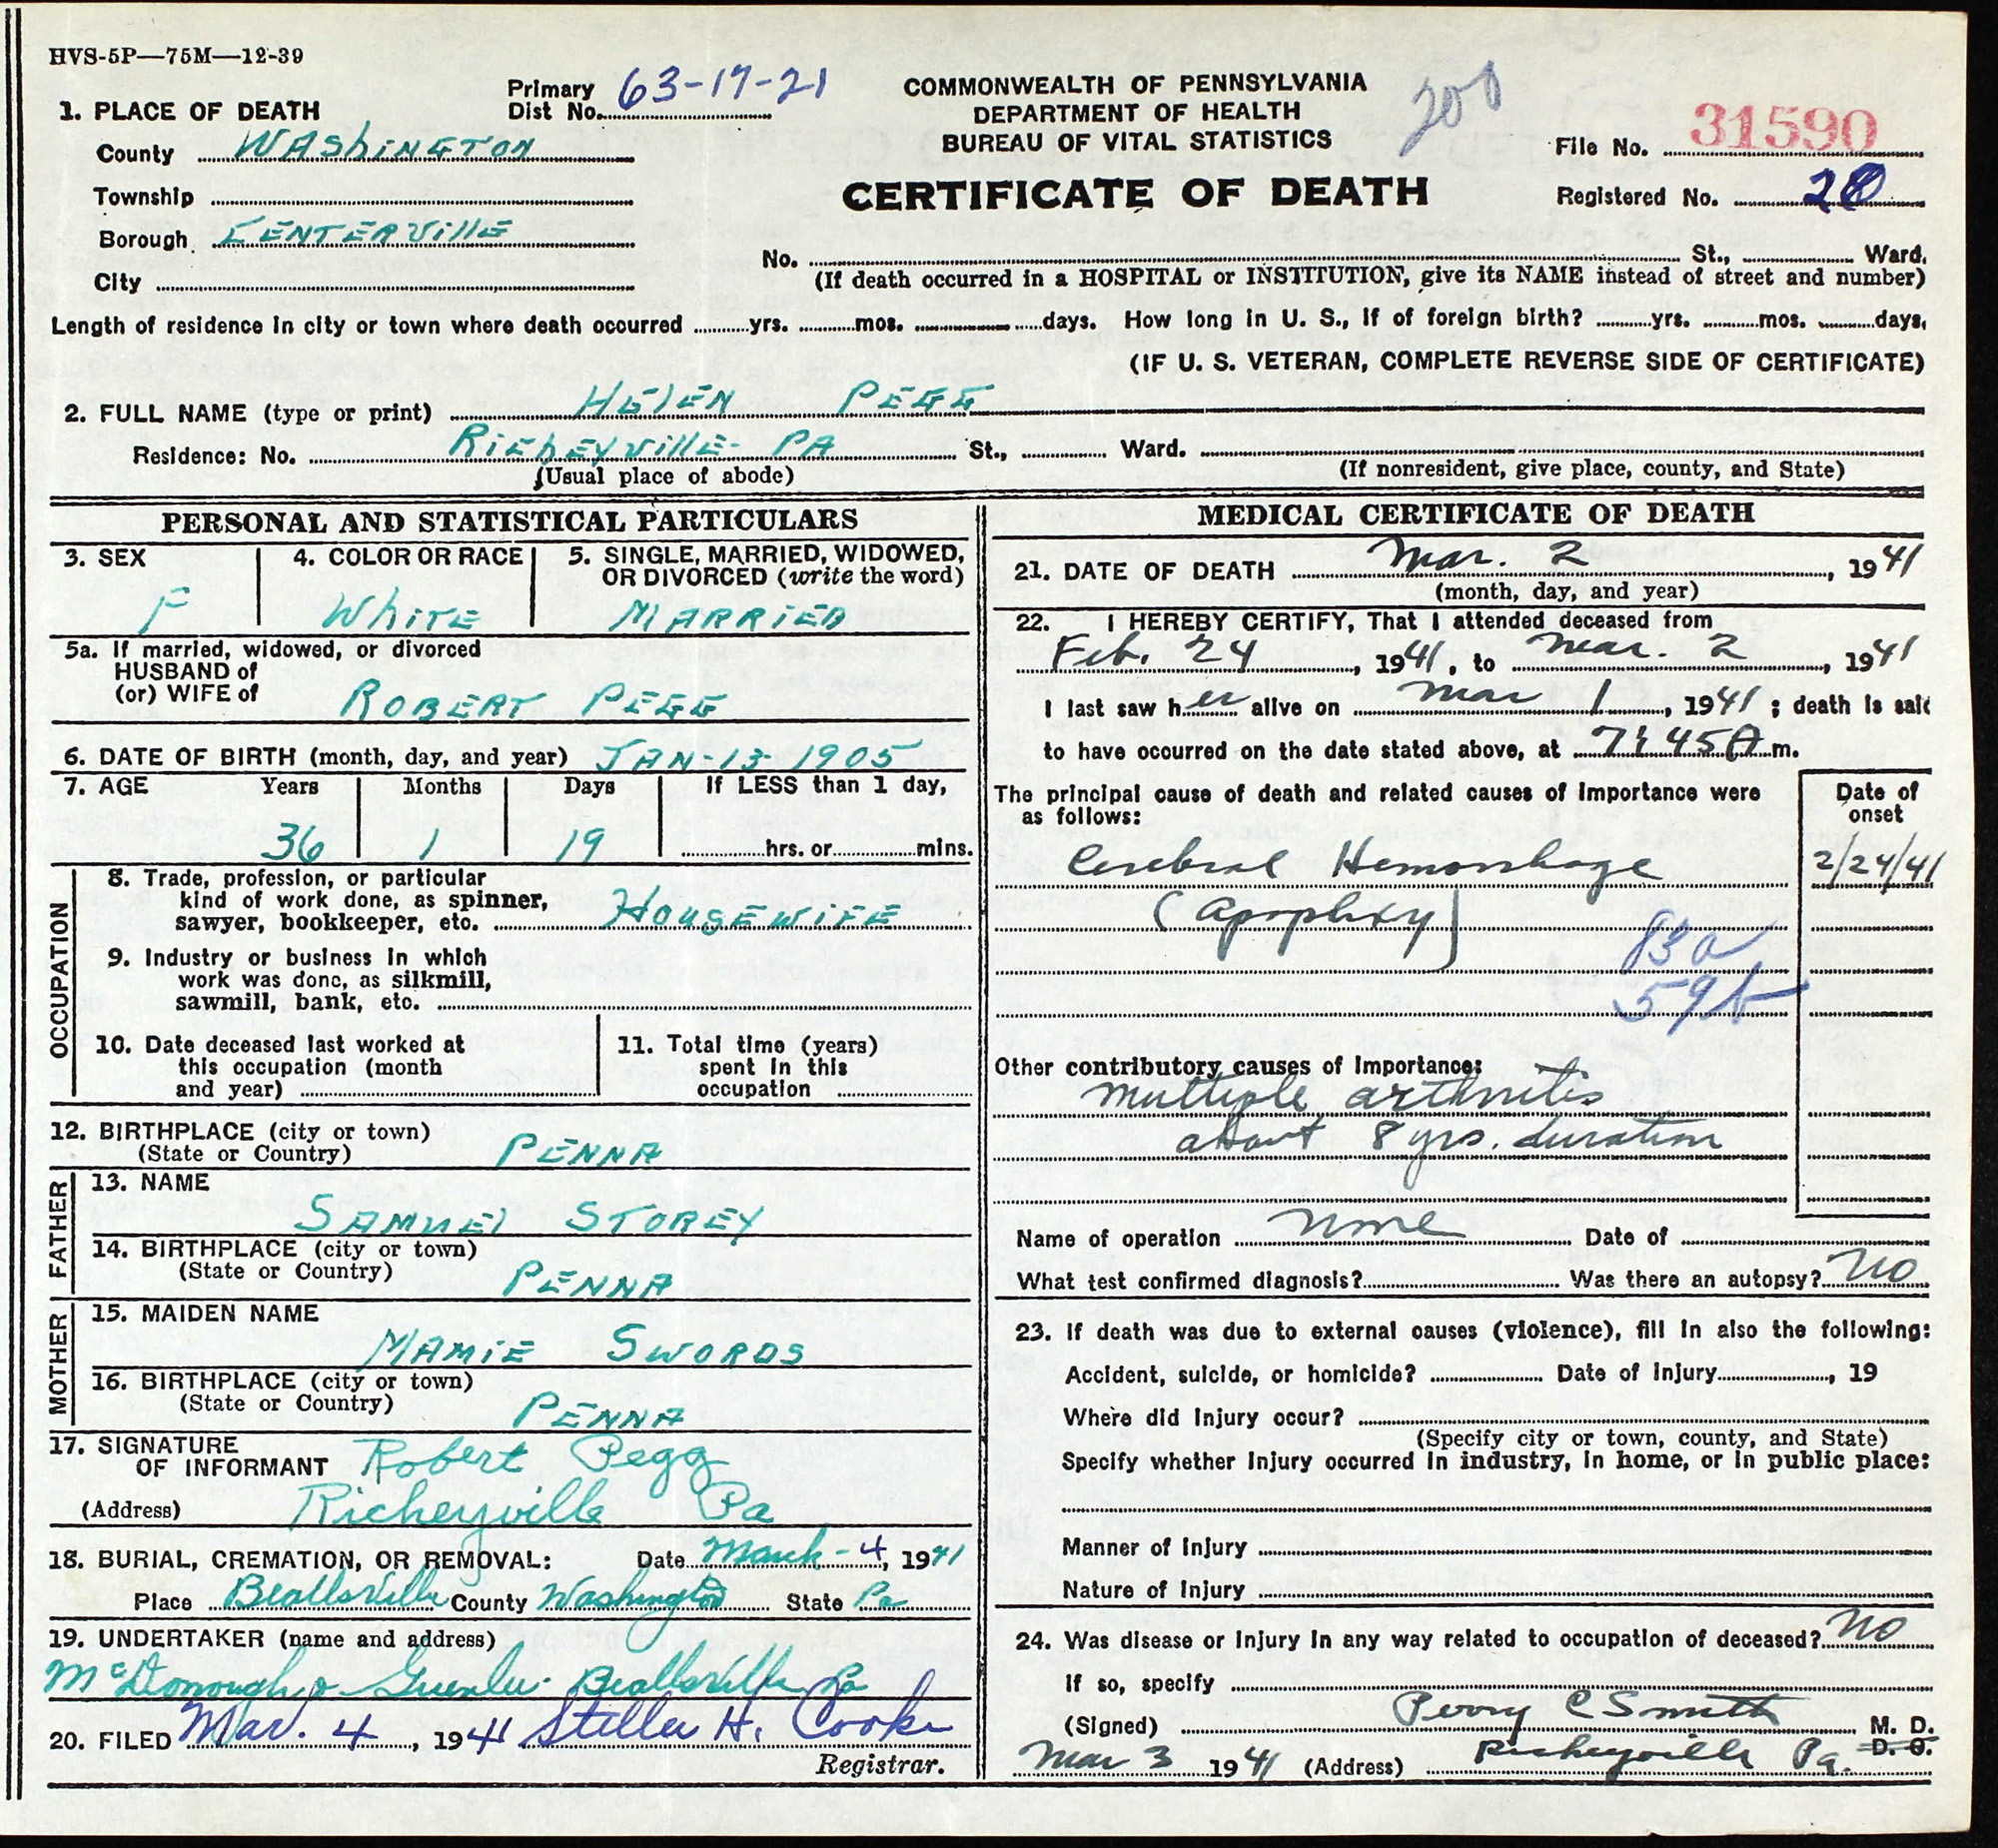 HVS-5P—75M—12-39
Primary Dist No. 63-17-21
COMMONWEALTH OF PENNSYLVANIA
DEPARTMENT OF HEALTH
BUREAU OF VITAL STATISTICS
200
File No. 31590
Registered No. 20
CERTIFICATE OF DEATH
1. PLACE OF DEATH
County WASHINGTON
Township
Borough CENTERVILLE
City
No. St., Ward.
(If death occurred in a HOSPITAL or INSTITUTION, give its NAME instead of street and number)
Length of residence in city or town where death occurred yrs. mos. days. How long in U. S., if of foreign birth? yrs. mos. days,
(IF U. S. VETERAN, COMPLETE REVERSE SIDE OF CERTIFICATE)
2. FULL NAME (type or print) HELEN PEGG
Residence: No. RICHEYVILLE- PA St., Ward.
(Usual place of abode) (If nonresident, give place, county, and State)
PERSONAL AND STATISTICAL PARTICULARS
3. SEX
F
4. COLOR OR RACE
WHITE
5. SINGLE, MARRIED, WIDOWED,
OR DIVORCED (write the word)
MARRIED
5a. If married, widowed, or divorced
HUSBAND of
(or) WIFE of ROBERT PEGG
6. DATE OF BIRTH (month, day, and year) JAN-13-1905
7. AGE Years Months Days If LESS than 1 day,
36 1 19 hrs. or mins.
OCCUPATION
8. Trade, profession, or particular
kind of work done, as spinner,
sawyer, bookkeeper, etc. HOUSEWIFE
9. Industry or business in which
work was done, as silkmill,
sawmill, bank, etc.
10. Date deceased last worked at
this occupation (month
and year)
11. Total time (years)
spent in this
occupation
12. BIRTHPLACE (city or town)
(State or Country) PENNA
FATHER
13. NAME
SAMUEL STOREY
14. BIRTHPLACE (city or town)
(State or Country) PENNA
MOTHER
15. MAIDEN NAME
MAMIE SWORDS
16. BIRTHPLACE (city or town)
(State or Country) PENNA
17. SIGNATURE
OF INFORMANT Robert Pegg
(Address) Richeyville Pa
18. BURIAL, CREMATION, OR REMOVAL: Date March-4, 1941
Place Beallsville County Washington State Pa
19. UNDERTAKER (name and address)
McDonough Beallsville Pa
20. FILED Mar. 4, 1941 Stella H. Cooke
Registrar.
MEDICAL CERTIFICATE OF DEATH
21. DATE OF DEATH Mar. 2, 1941
(month, day, and year)
22. I HEREBY CERTIFY, That I attended deceased from
Feb. 24, 1941, to Mar. 2, 1941
I last saw her alive on Mar 1, 1941; death is said
to have occurred on the date stated above, at 7:45A m.
The principal cause of death and related causes of importance were
as follows:
Date of
onset
Cerebral Hemorrhage 2/24/41
(Apoplexy)
83a
59b
Other contributory causes of importance:
Multiple arthritis
about 8 yrs. duration
Name of operation none Date of
What test confirmed diagnosis? Was there an autopsy? no
23. If death was due to external causes (violence), fill in also the following:
Accident, suicide, or homicide? Date of injury, 19
Where did injury occur?
(Specify city or town, county, and State)
Specify whether injury occurred in industry, in home, or in public place:
Manner of injury
Nature of injury
24. Was disease or injury in any way related to occupation of deceased? no
If so, specify
(Signed) Perry C Smith M. D.
D. O.
Mar 3 1941 (Address) Richeyville Pa.